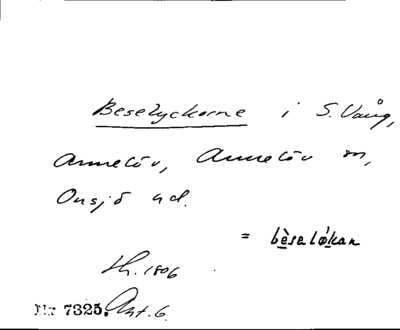 Beselyckorne i S. Vång,
Annelöv, Annelöv sn,
Onsjö hd.
= bèsalókan
Lh. 1806
Nr 7325. Akt. 6.